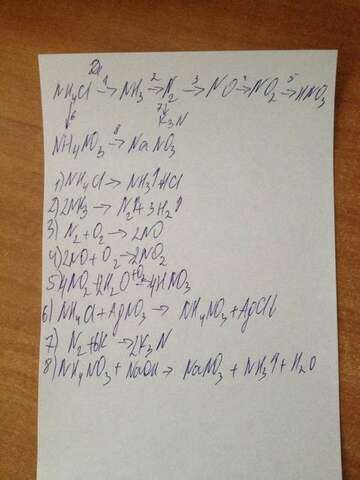 NH₄Cl 1→ NH₃ 2→ N₂ 3→ NO 4→ NO₂ 5→ HNO₃
↓6 7↓ K₃N
NH₄NO₃ 8→ NaNO₃
1) NH₄Cl → NH₃↑+HCl
2) 2NH₃ → N₂↑+3H₂↑
3) N₂+O₂ → 2NO
4) 2NO+O₂ → 2NO₂
5) 4NO₂+2H₂O +O₂→ 4HNO₃
6) NH₄Cl+AgNO₃ → NH₄NO₃+AgCl↓
7) N₂+6K → 2K₃N
8) NH₄NO₃+NaOH → NaNO₃+NH₃↑+H₂O